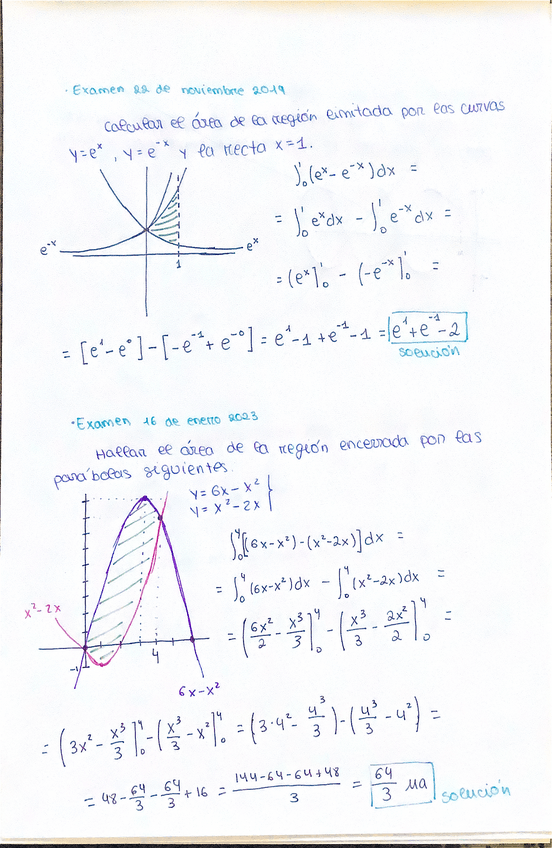 · Examen 22 de noviembre 2019
Calcular el área de la región limitada por las curvas
y=eˣ , y=e⁻ˣ y la recta x=1.
∫₀¹(eˣ-e⁻ˣ)dx =
= ∫₀¹eˣdx - ∫₀¹e⁻ˣdx =
e⁻ˣ
eˣ
1
= (eˣ]₀¹ - (-e⁻ˣ]₀¹ =
= [e¹-e⁰]-[-e⁻¹+e⁻⁰] = e¹-1+e⁻¹-1 = e¹+e⁻¹-2
solución
· Examen 16 de enero 2023
Hallar el área de la región encerrada por las
parábolas siguientes.
y=6x-x²
y=x²-2x
∫₀⁴[(6x-x²)-(x²-2x)]dx =
= ∫₀⁴(6x-x²)dx - ∫₀⁴(x²-2x)dx =
x²-2x
= (6x²/2 - x³/3]₀⁴ - (x³/3 - 2x²/2]₀⁴ =
4
-1
6x-x²
= (3x² - x³/3]₀⁴ - (x³/3 - x²]₀⁴ = (3·4² - 4³/3) - (4³/3 - 4²) =
= 48 - 64/3 - 64/3 + 16 = 144-64-64+48/3 = 64/3 ua
solución